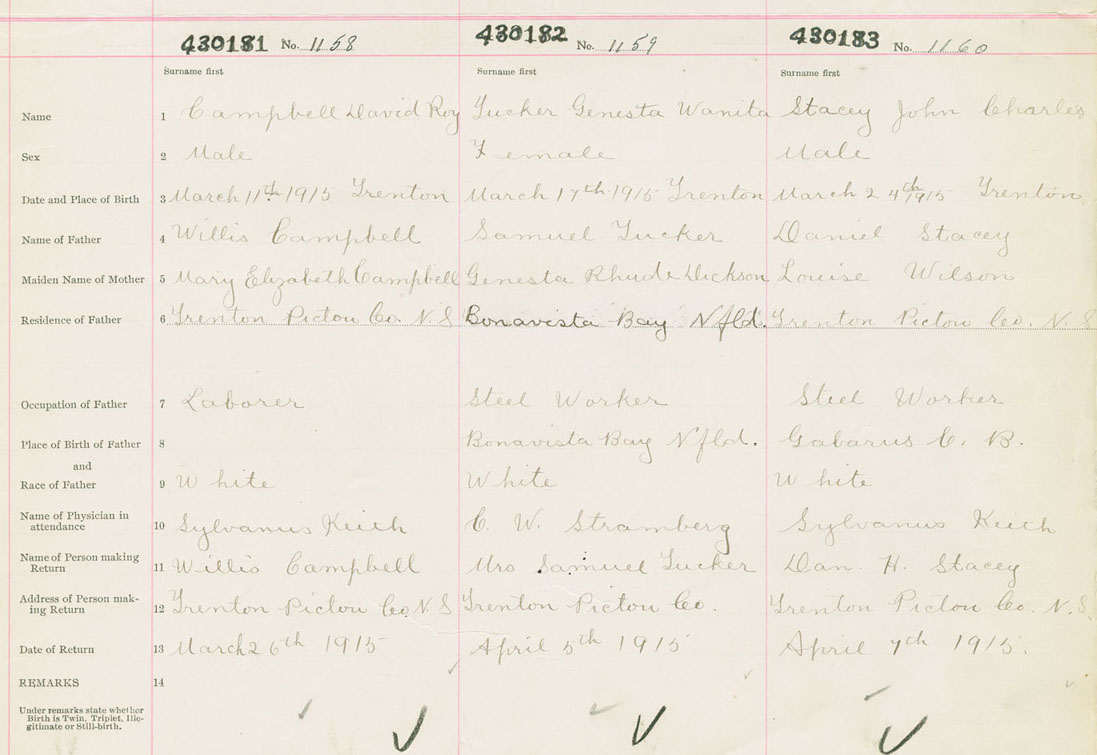 430181 No. 1158 430182 No. 1159 430183 No. 1160
Surname first Surname first Surname first
Name 1 Campbell David Roy Tucker Genesta Wanita Stacey John Charles
Sex 2 Male Female Male
Date and Place of Birth 3 March 11th 1915 Trenton March 17th 1915 Trenton March 24th 1915 Trenton
Name of Father 4 Willis Campbell Samuel Tucker Daniel Stacey
Maiden Name of Mother 5 Mary Elizabeth Campbell Genesta Rhude Dickson Louise Wilson
Residence of Father 6 Trenton Pictou Co. N.S Bonavista Bay Nfld. Trenton Pictou Co. N.S
Occupation of Father 7 Laborer Steel Worker Steel Worker
Place of Birth of Father 8 Bonavista Bay Nfld. Gabarus C. B.
and
Race of Father 9 White White White
Name of Physician in
attendance 10 Sylvanus Keith C. W. Stramberg Sylvanus Keith
Name of Person making
Return 11 Willis Campbell Mrs Samuel Tucker Dan. H. Stacey
Address of Person mak-
ing Return 12 Trenton Pictou Co. N.S Trenton Pictou Co. Trenton Pictou Co. N.S.
Date of Return 13 March 26th 1915 April 5th 1915 April 7th 1915.
REMARKS 14
Under remarks state whether
Birth is Twin, Triplet, Ille-
gitimate or Still-birth.